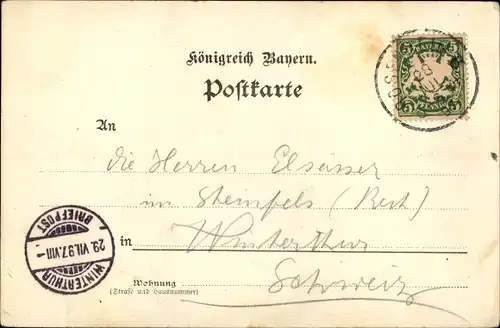 Königreich Bayern.
Postkarte
BAYERN
5 5
5 PFENNIG 5
An
die Herren Elsässer
im Steinfels (Rest)
in Winterthur
Wohnung
(Straße und Hausnummer)
Schweiz
WINTERTHUR
29. VII. 97. VIII
BRIEFPOST